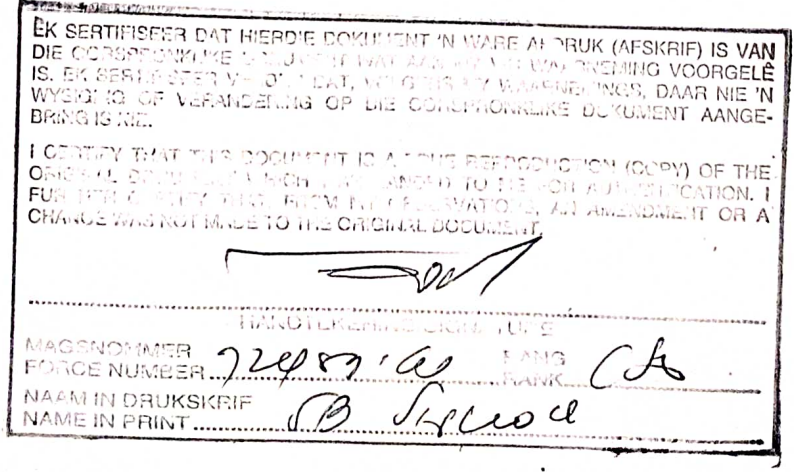 EK SERTIFISEER DAT HIERDIE DOKUMENT 'N WARE AFDRUK (AFSKRIF) IS VAN
DIE OORSPRONKLIKE DOKUMENT WAT AAN MY VIR WAARNEMING VOORGELÊ
IS. EK SERTIFISEER VERDER DAT, VOLGENS MY WAARNEMINGS, DAAR NIE 'N
WYSIGING OF VERANDERING OP DIE OORSPRONKLIKE DOKUMENT AANGE-
BRING IS NIE.
I CERTIFY THAT THIS DOCUMENT IS A TRUE REPRODUCTION (COPY) OF THE
ORIGINAL DOCUMENT WHICH WAS HANDED TO ME FOR AUTHENTICATION. I
FURTHER CERTIFY THAT, FROM MY OBSERVATIONS, AN AMENDMENT OR A
CHANGE WAS NOT MADE TO THE ORIGINAL DOCUMENT.
HANDTEKENING SIGNATURE
MAGSNOMMER RANG
FORCE NUMBER RANK
NAAM IN DRUKSKRIF
NAME IN PRINT SB